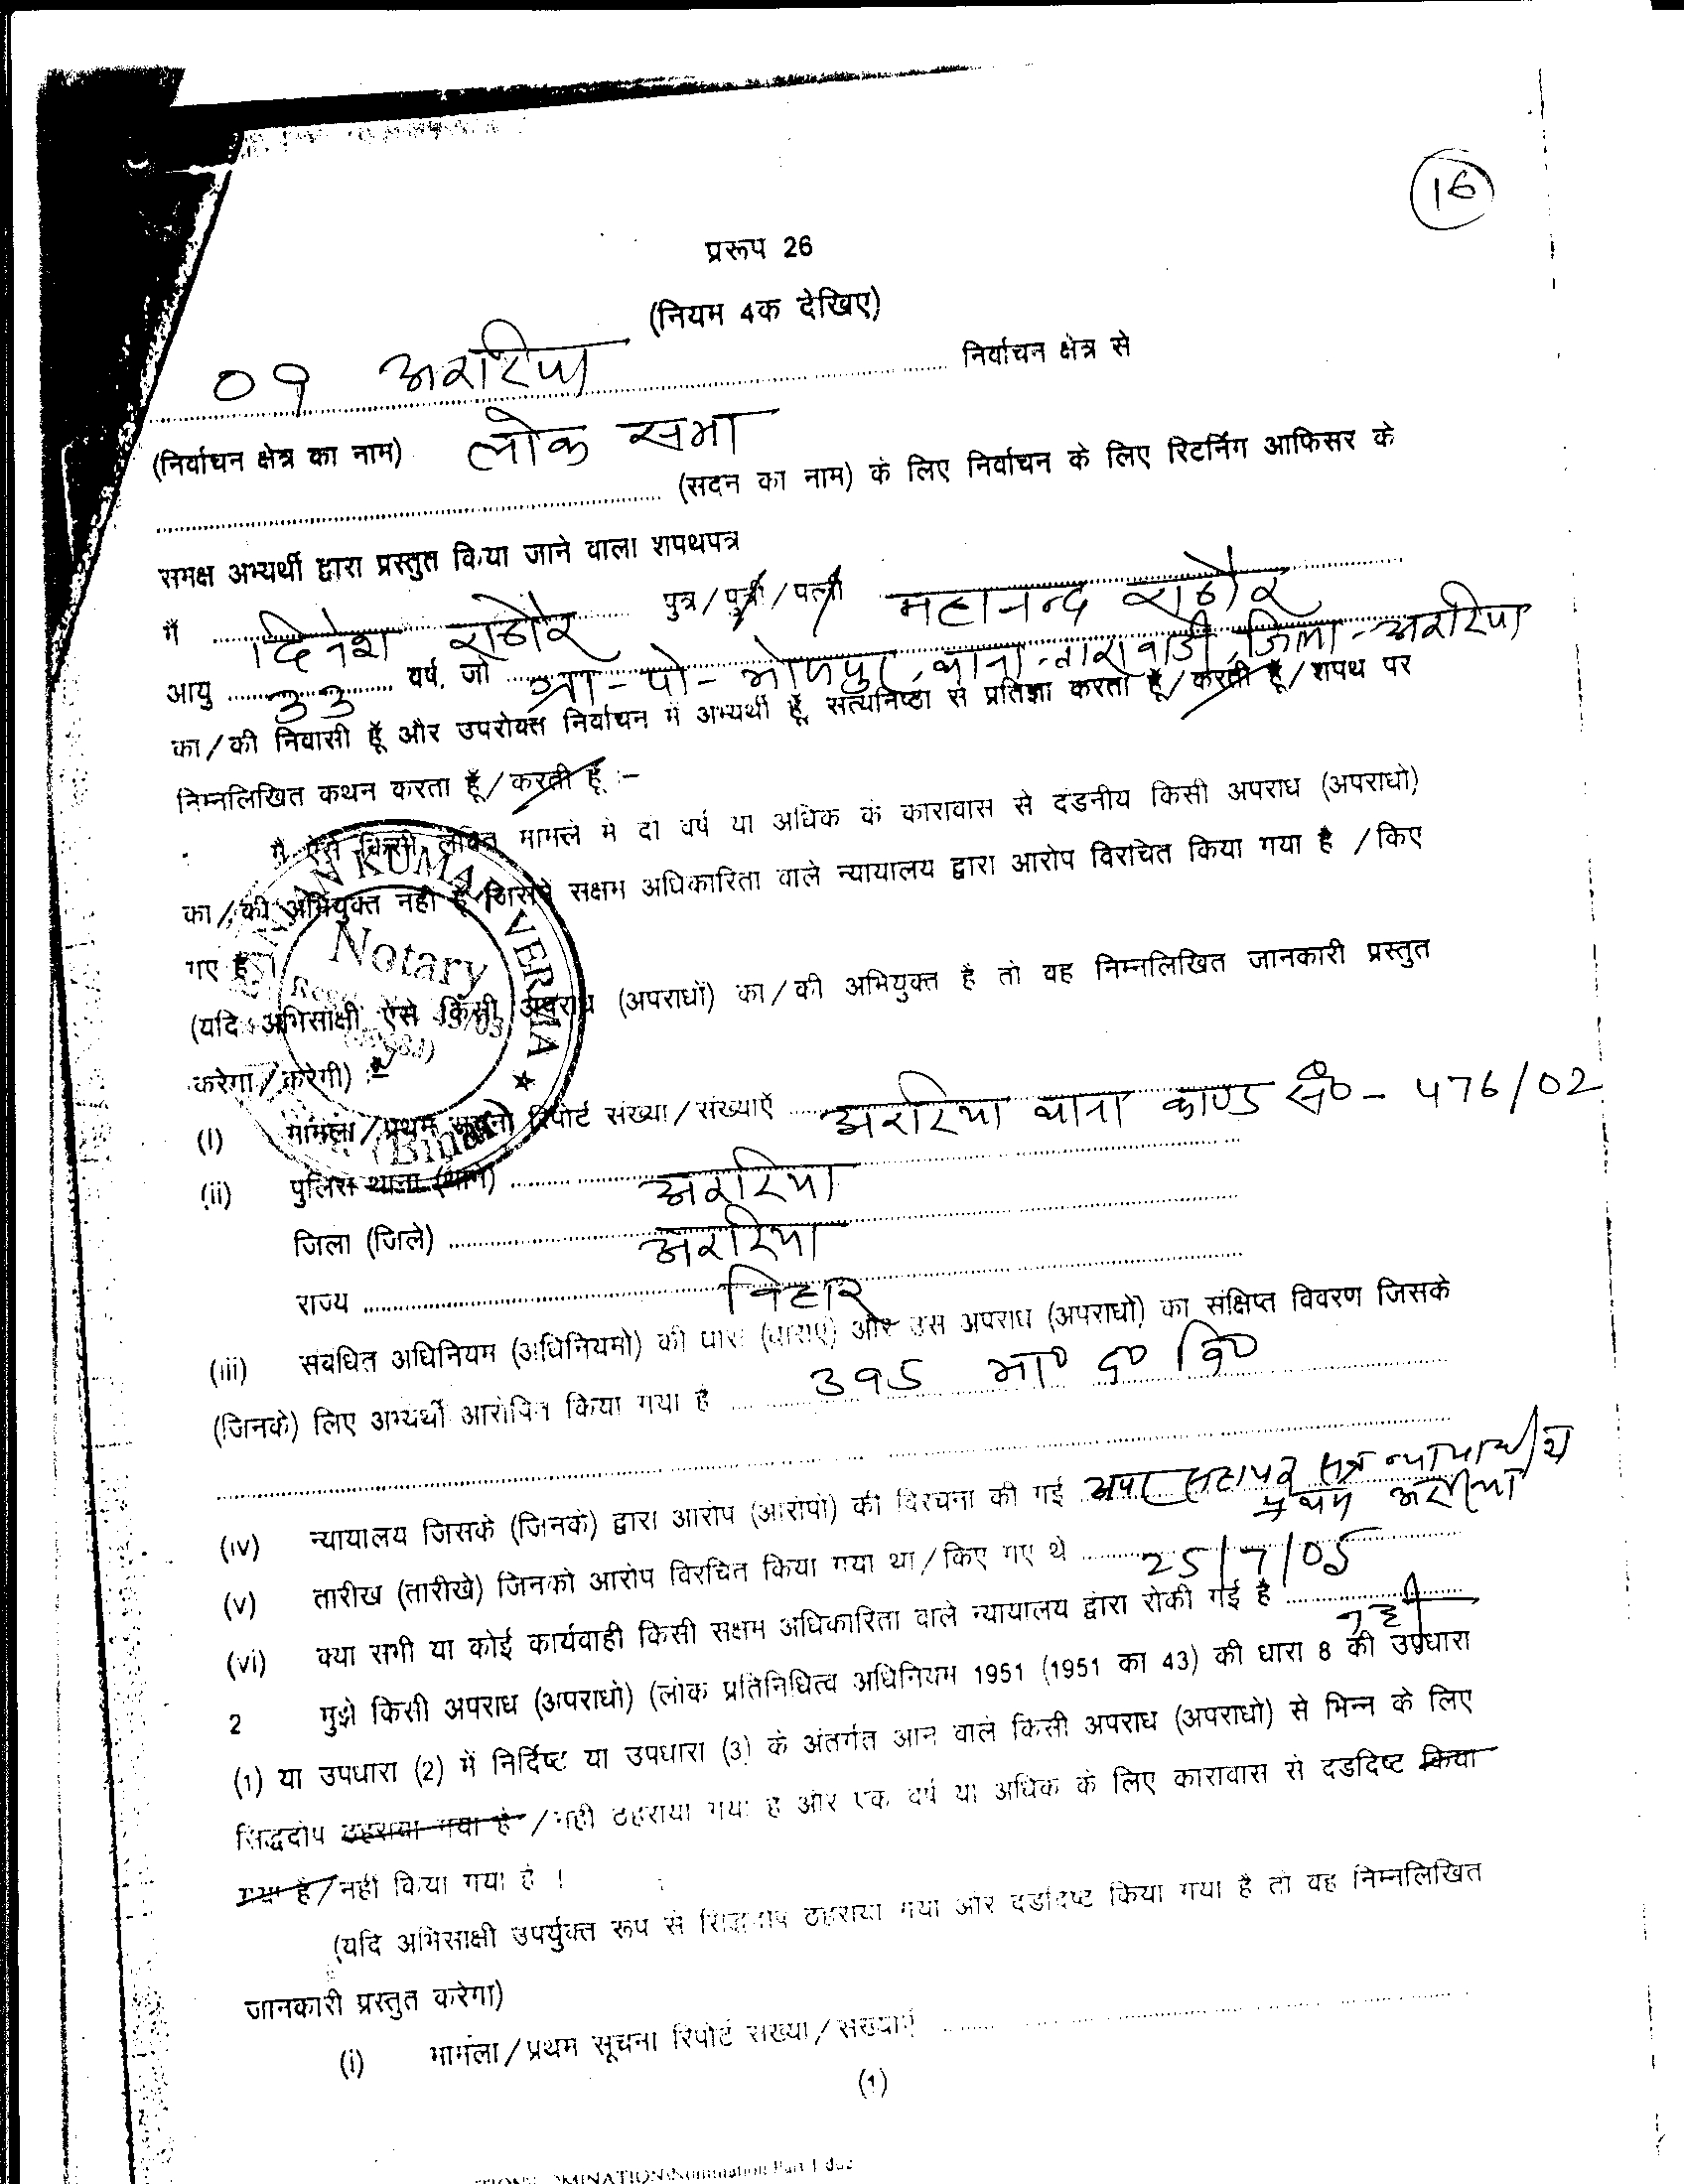 16
प्ररूप 26
(नियम 4क देखिए)
09 अररिया ........ निर्वाचन क्षेत्र से
(निर्वाचन क्षेत्र का नाम) लोक सभा
........ (सदन का नाम) के लिए निर्वाचन के लिए रिटर्निंग आफिसर के
समक्ष अभ्यर्थी द्वारा प्रस्तुत किया जाने वाला शपथपत्र
मैं दिनेश राठौर पुत्र/पुत्री/पत्नी महानन्द राठौर
आयु 33 वर्ष, जो ग्रा-पो- थाना-ताराबाड़ी, जिला-अररिया
का/की निवासी हूँ और उपरोक्त निर्वाचन में अभ्यर्थी हूँ, सत्यनिष्ठा से प्रतिज्ञा करता हूँ/करती हूँ/शपथ पर
निम्नलिखित कथन करता हूँ/करती हूँ :-
मैं ऐसे किसी लंबित मामले में दो वर्ष या अधिक के कारावास से दंडनीय किसी अपराध (अपराधों)
का/की अभियुक्त नहीं हूँ जिसमें सक्षम अधिकारिता वाले न्यायालय द्वारा आरोप विरचित किया गया है /किए
गए हैं।
(यदि अभिसाक्षी ऐसे किसी अपराध (अपराधों) का/की अभियुक्त है तो वह निम्नलिखित जानकारी प्रस्तुत
करेगा/करेगी) :-
KUMAR VERMA ★
Notary
(Bihar)
(i) मामला/प्रथम सूचना रिपोर्ट संख्या/संख्याएँ अररिया थाना काण्ड सं०- 476/02
(ii) पुलिस थाना (थाने) अररिया
जिला (जिले) अररिया
राज्य बिहार
(iii) संबंधित अधिनियम (अधिनियमों) की धारा (धाराएं) और उस अपराध (अपराधों) का संक्षिप्त विवरण जिसके
(जिनके) लिए अभ्यर्थी आरोपित किया गया है 395 भा० द० वि०
(iv) न्यायालय जिसके (जिनके) द्वारा आरोप (आरोपों) की विरचना की गई अपर सत्र न्यायाधीश
प्रथम अररिया
(v) तारीख (तारीखें) जिनको आरोप विरचित किया गया था/किए गए थे 25/7/05
(vi) क्या सभी या कोई कार्यवाही किसी सक्षम अधिकारिता वाले न्यायालय द्वारा रोकी गई है नहीं
2 मुझे किसी अपराध (अपराधों) (लोक प्रतिनिधित्व अधिनियम 1951 (1951 का 43) की धारा 8 की उपधारा
(1) या उपधारा (2) में निर्दिष्ट या उपधारा (3) के अंतर्गत आने वाले किसी अपराध (अपराधों) से भिन्न के लिए
सिद्धदोष ठहराया गया है /नहीं ठहराया गया है और एक वर्ष या अधिक के लिए कारावास से दंडदिष्ट किया
गया है/नहीं किया गया है ।
(यदि अभिसाक्षी उपर्युक्त रूप से सिद्धदोष ठहराया गया और दंडादिष्ट किया गया है तो वह निम्नलिखित
जानकारी प्रस्तुत करेगा)
(i) मामला/प्रथम सूचना रिपोर्ट संख्या/संख्याएं ........
(1)